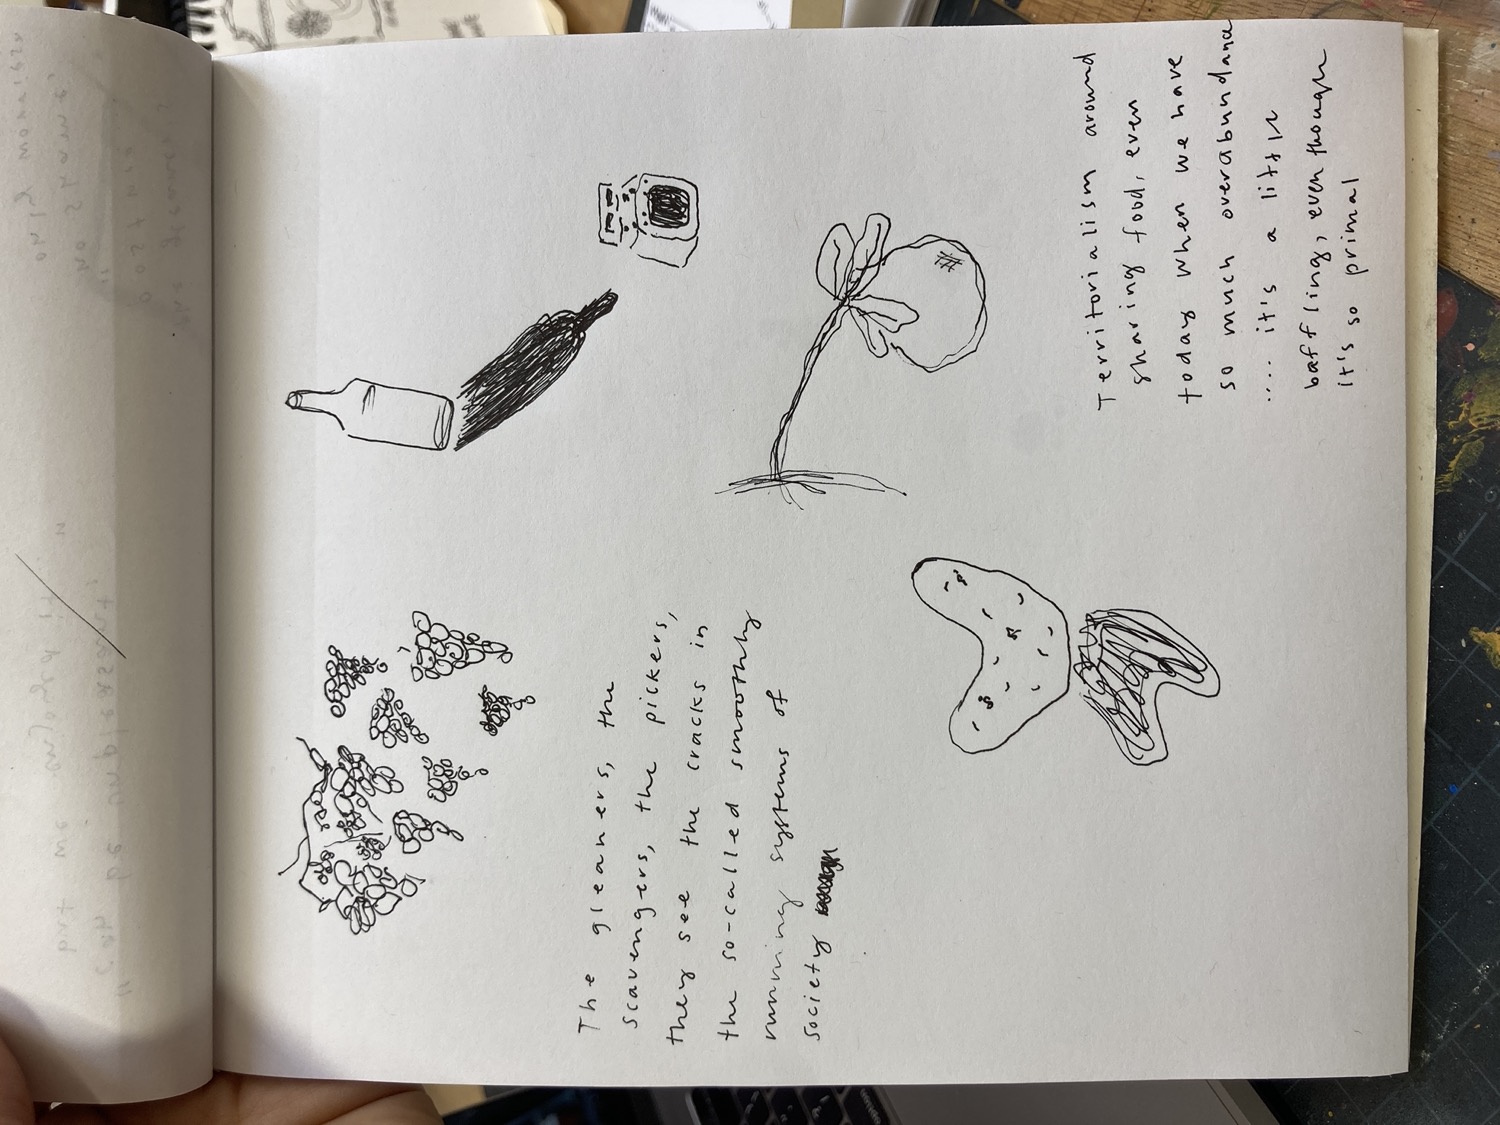 The gleaners, the
scavengers, the pickers,
they see the cracks in
the so-called smoothly
running systems of
society
Territorialism around
sharing food, even
today when we have
so much overabundance
.... it's a little
baffling, even though
it's so primal